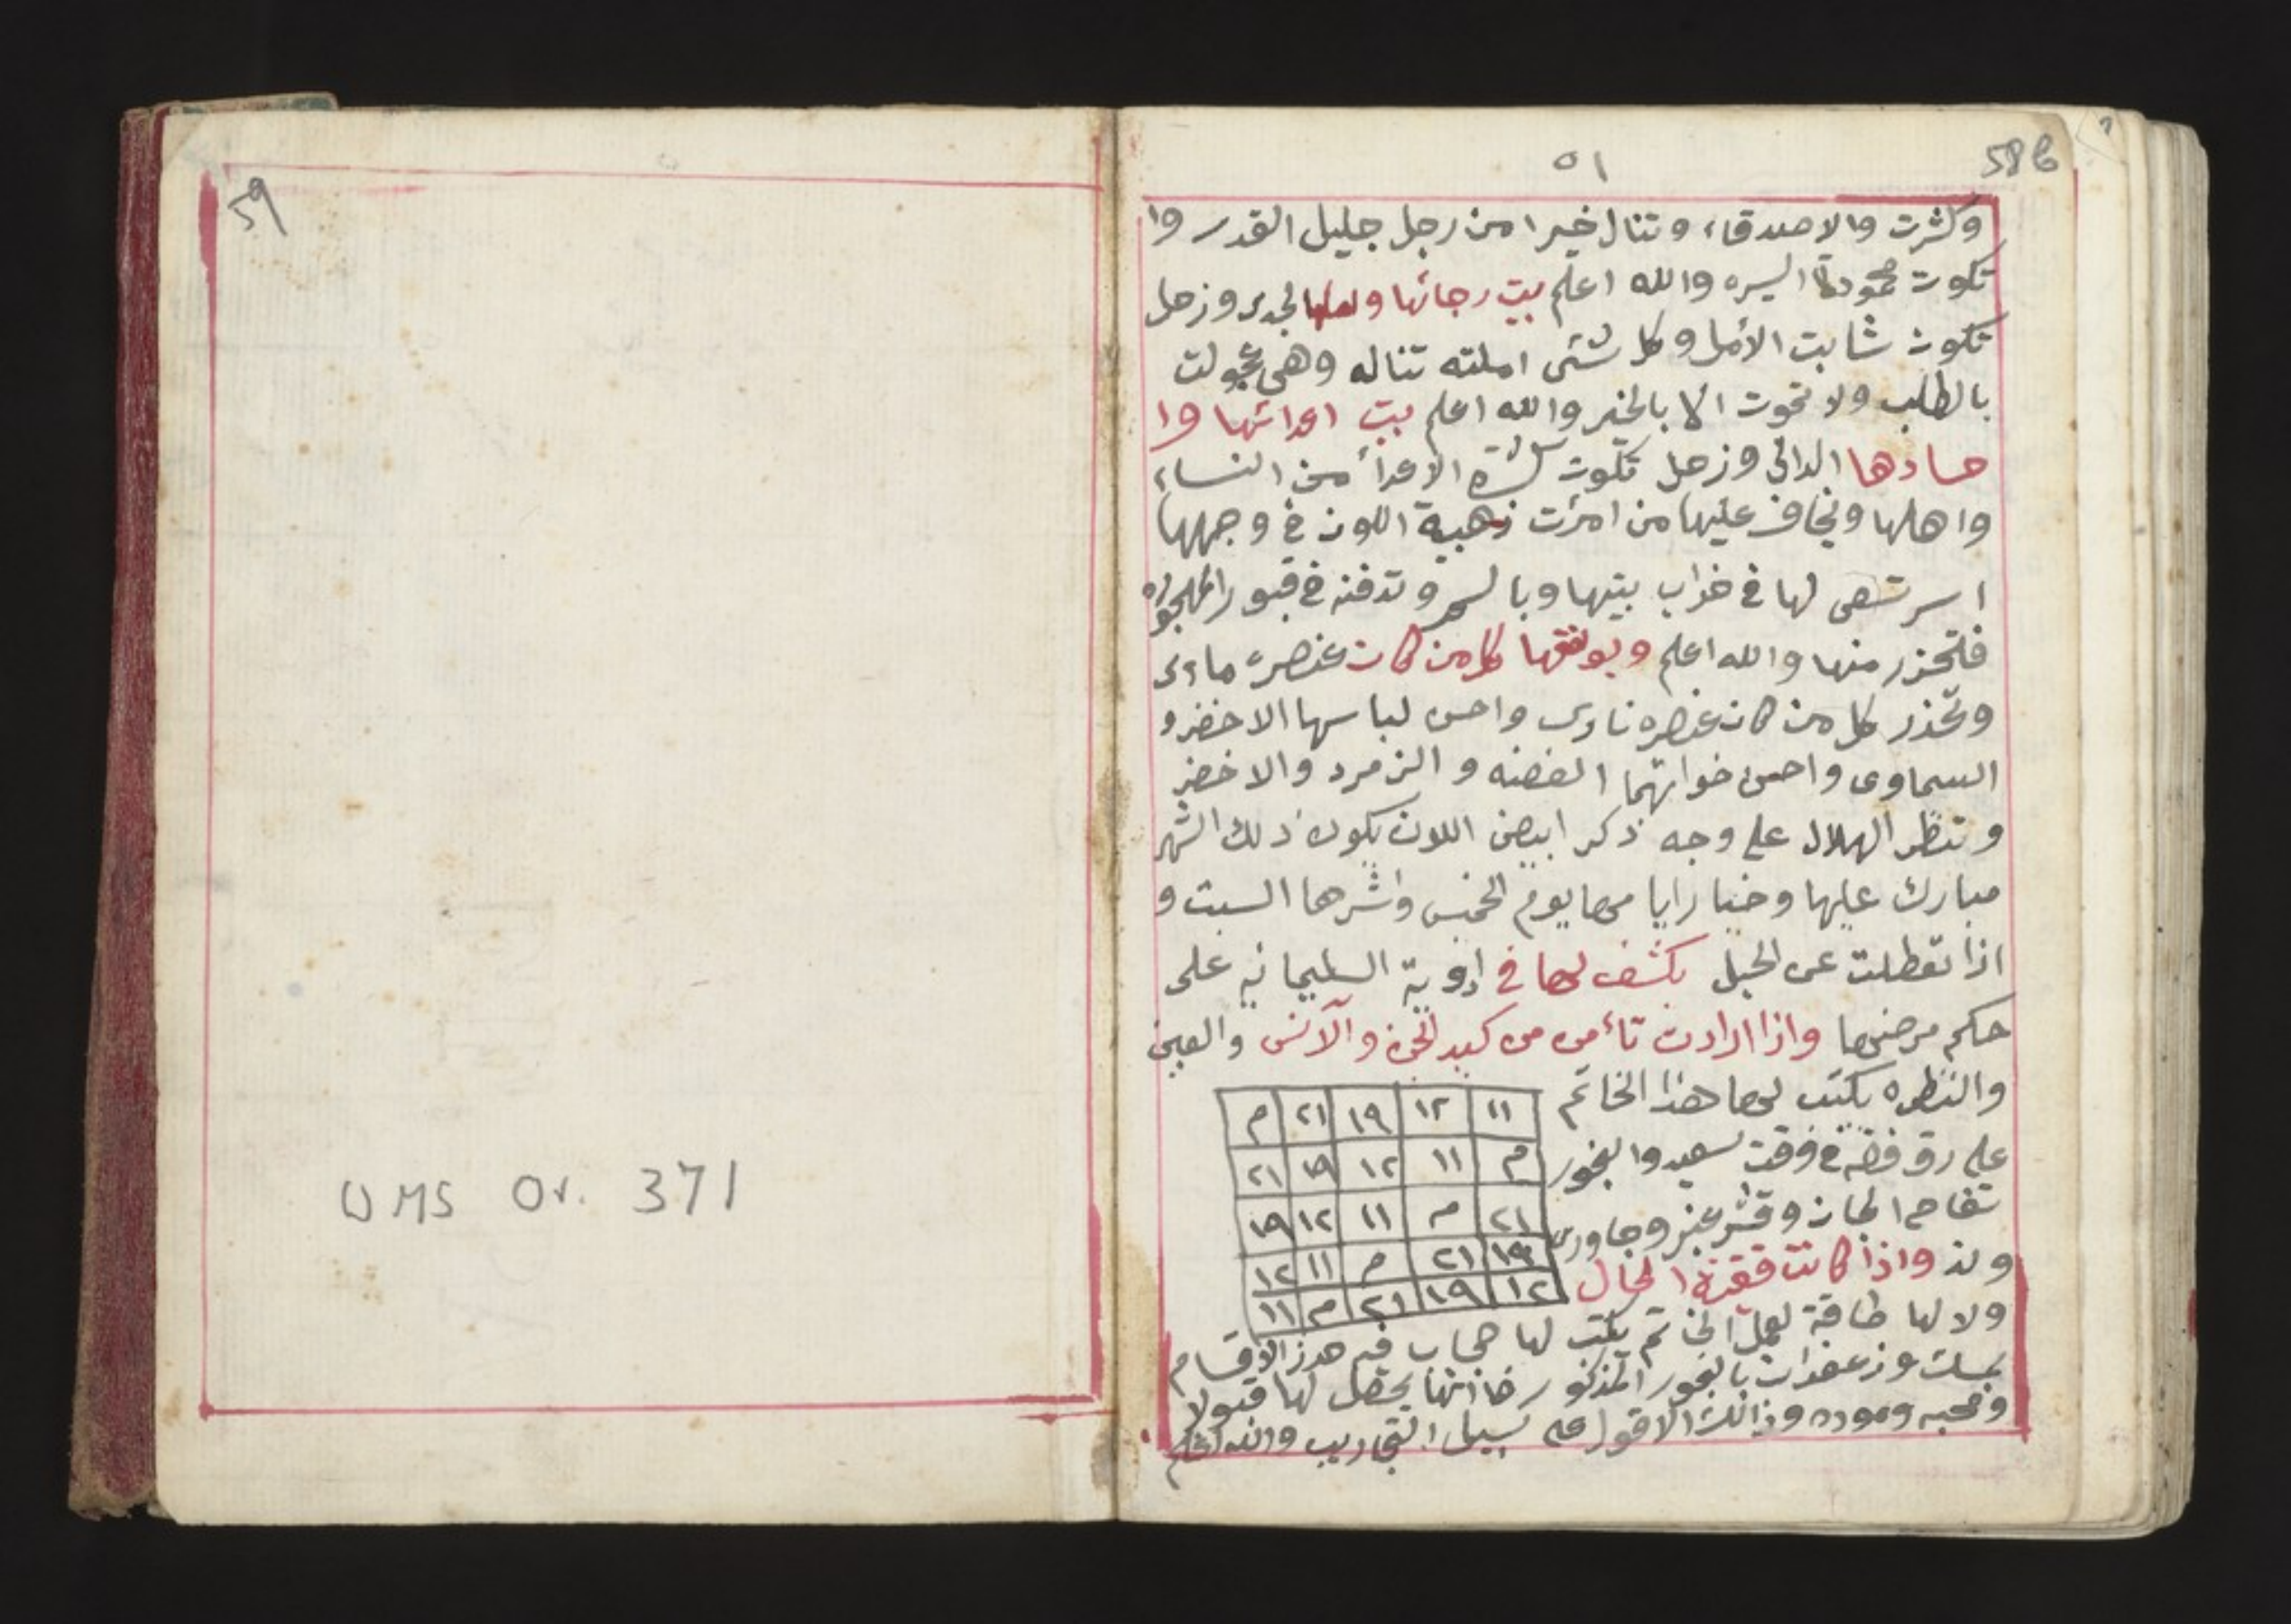 58b
٥١
وكثرت والاصدقاء وتنال خيرا من رجل جليل القدر وا
تكون محمودة السيره والله اعلم بيت رجائها الجدى وزحل
تكون ثابت الأمل وكل شئ املته تناله وهى عجولت
بالطلب ولا تموت الا بالخير والله اعلم بيت اعدائها وا
حسادها الدالى وزحل تكون كثرة الاعدأ من النساء
واهلها ويخاف عليها من امرأت ذهبية اللون في وجهها
اسر تسعى لها في خراب بيتها وبالسحر وتدفنه في قبور المهجوره
فلتحزر منها والله اعلم ويوفقها كل من كان عنصره مائى
وتحذر كل من كان عنصره نارى واحسن لباسها الاخضر و
السماوى واحسن خواتمها الفضه و الزمرد والاخضر
وتنظر الهلال على وجه ذكر ابيض اللون يكون ذلك الشهر
مبارك عليها وخيار ايامها يوم الخميس واشرها السبت و
اذا تعطلت عن الحبل يكشف لها في ادوية السليمانيه على
حكم مرضها واذا ارادت تأمن من كيد الجن والآنس والعين
والنظره يكتب لها هذا الخاتم
على رق فضه في وقت سعيد والبخور
تفاح الجان وقشر عنبر وجاورى
وند واذا كانت فقيرة الحال
١١ ١٢ ١٩ ٢١ م
م ١١ ١٢ ١٩ ٢١
٢١ م ١١ ١٢ ١٩
١٩ ٢١ م ١١ ١٢
١٢ ١٩ ٢١ م ١١
ولا لها طاقة لعمل الخاتم يكتب لها حجاب فيه هذز الاقسام
بمسك وزعفران بالبخور المذكور فانها يحصل لها قبولا
ومحبه وموده وذالك الاقول على سبيل التجاريب والله اعلم
59
WMS Or. 371